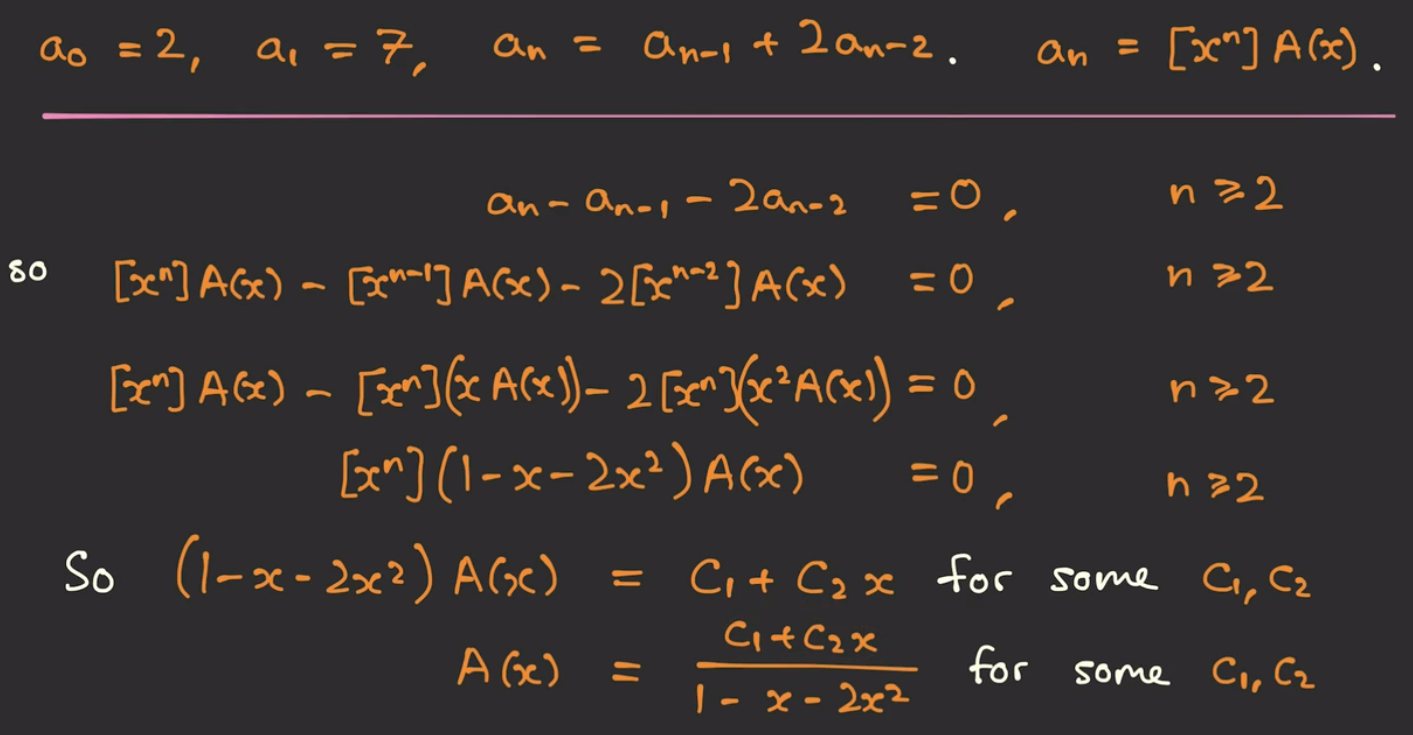 a₀ = 2, a₁ = 7, aₙ = aₙ₋₁ + 2aₙ₋₂. aₙ = [xⁿ] A(x).
aₙ - aₙ₋₁ - 2aₙ₋₂ = 0, n ⩾ 2
so [xⁿ] A(x) - [xⁿ⁻¹] A(x) - 2[xⁿ⁻²] A(x) = 0, n ⩾ 2
[xⁿ] A(x) - [xⁿ](x A(x)) - 2[xⁿ](x² A(x)) = 0, n ⩾ 2
[xⁿ] (1 - x - 2x²) A(x) = 0, n ⩾ 2
So (1 - x - 2x²) A(x) = C₁ + C₂ x for some C₁, C₂
A(x) = (C₁ + C₂x)/(1 - x - 2x²) for some C₁, C₂